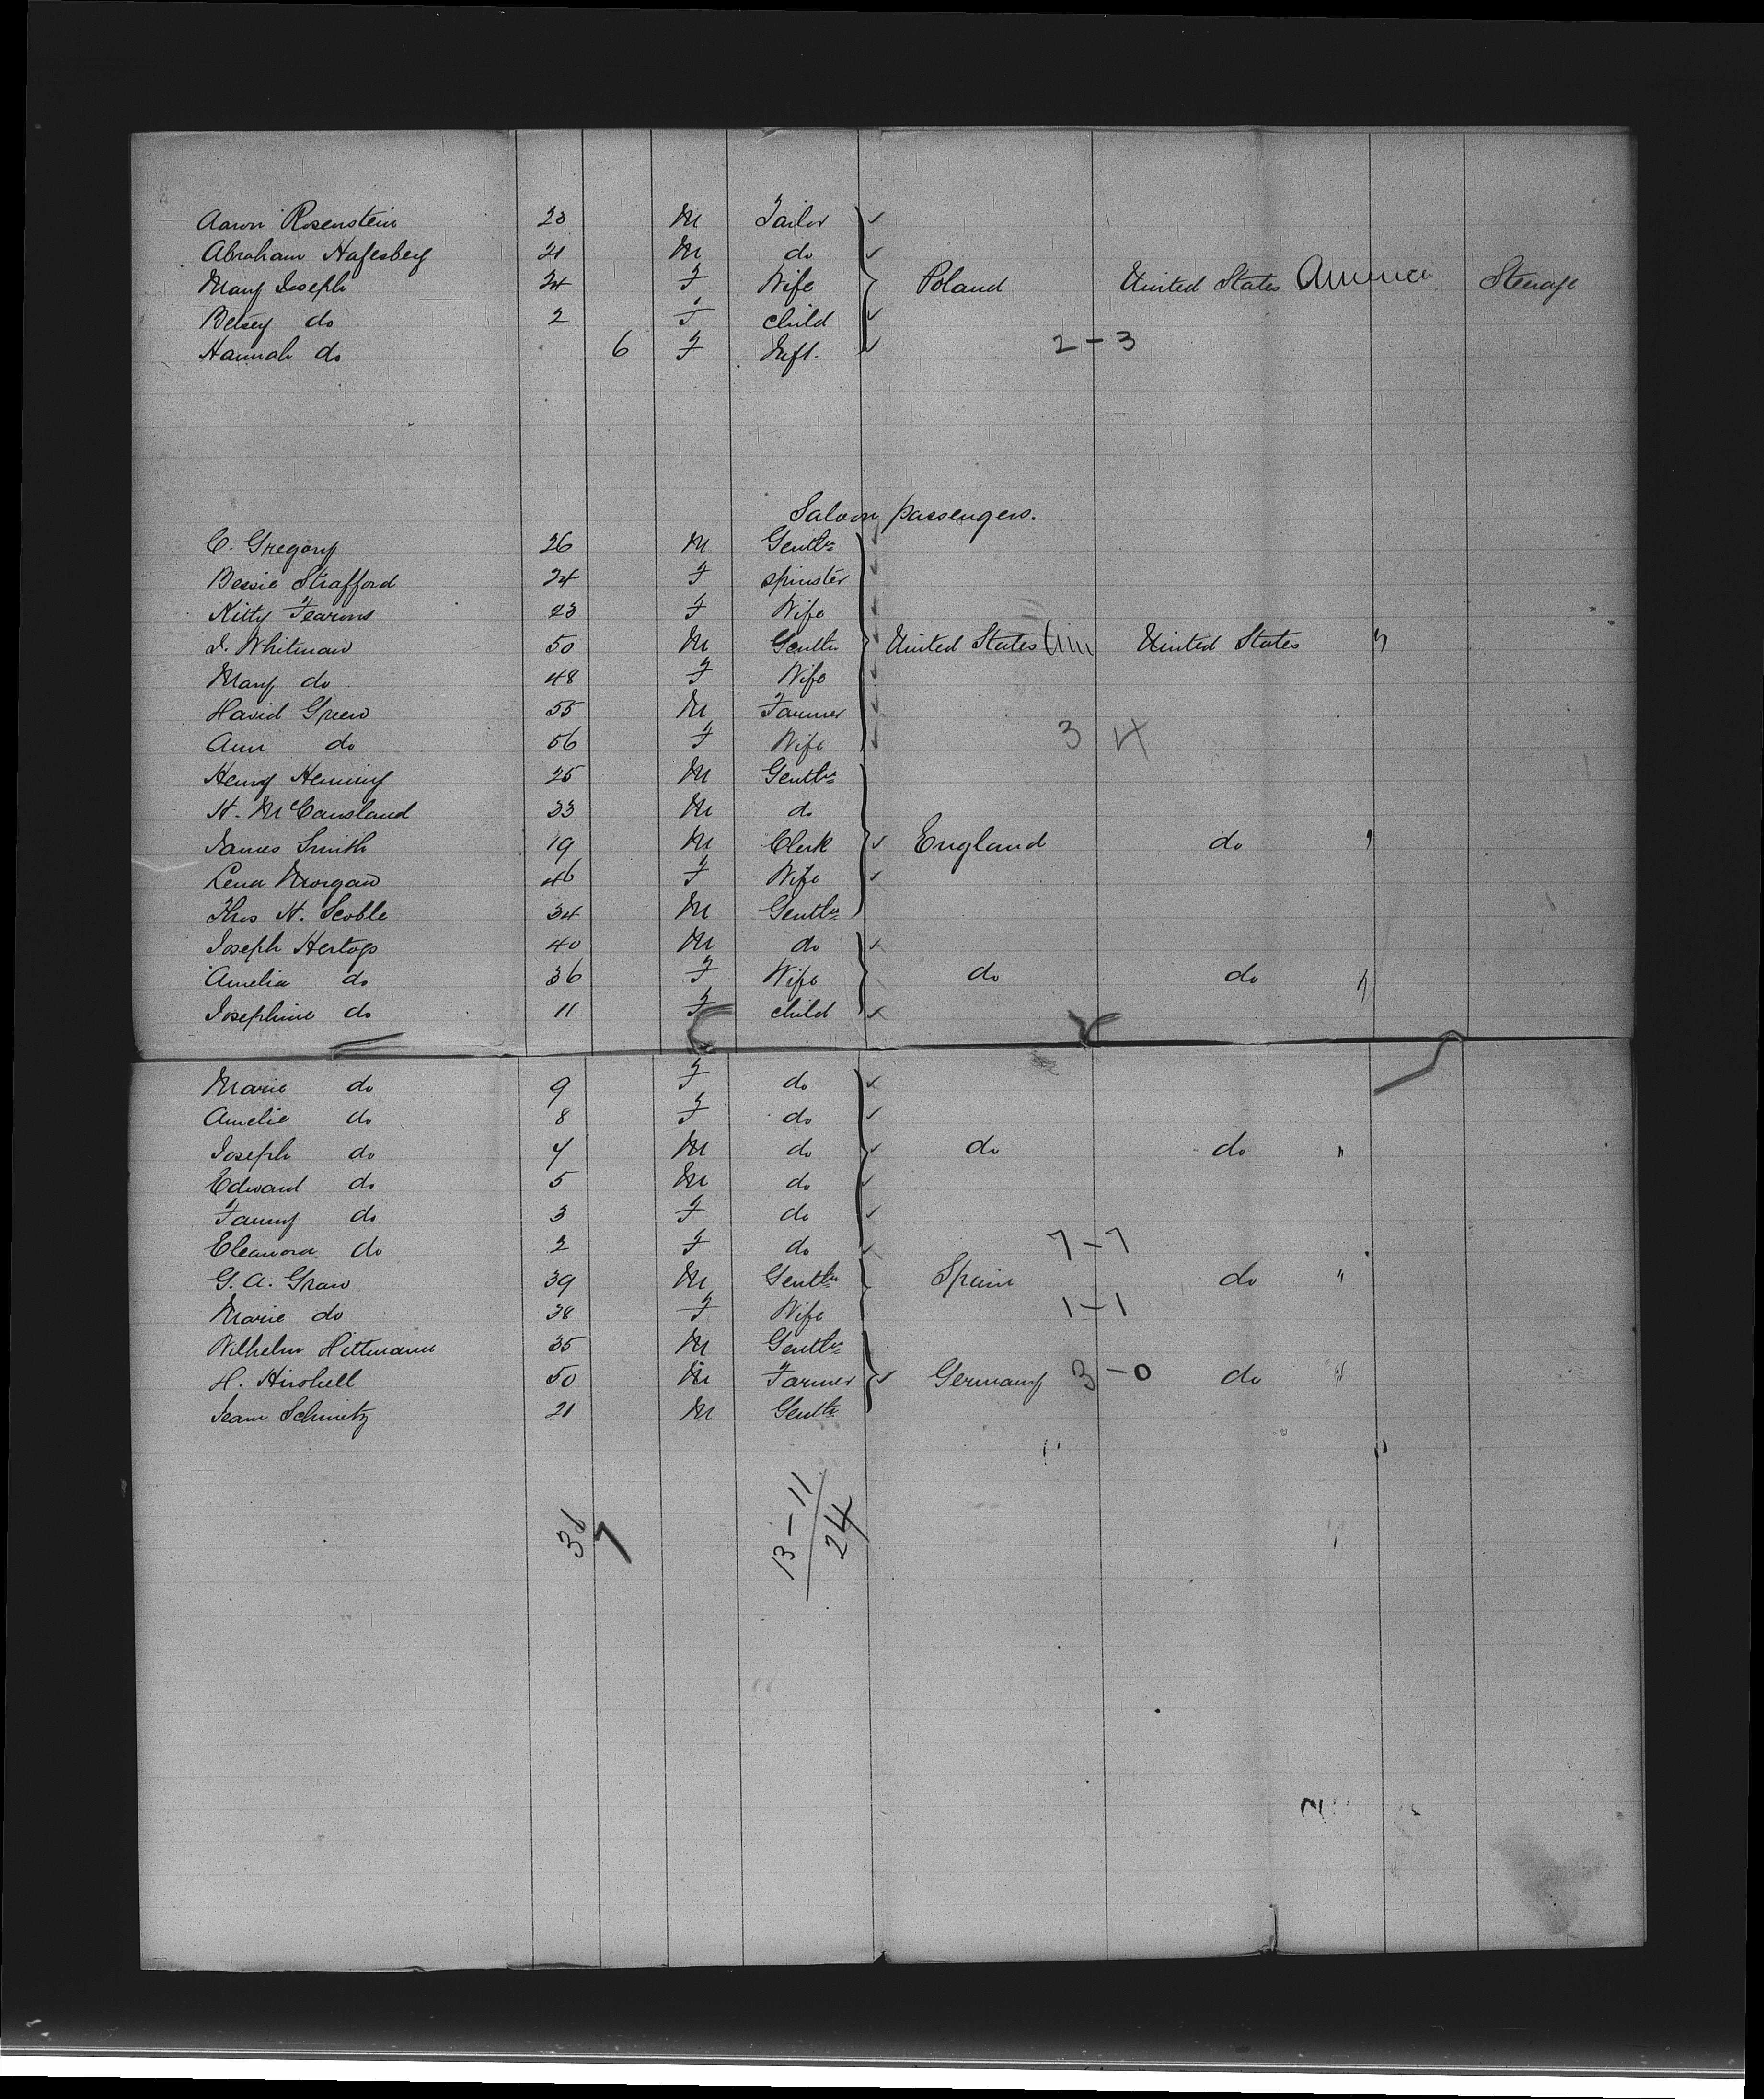 Aaron Rosenstein 23 M Tailor
Abraham Hafesberg 21 M do
Mary Joseph 24 F Wife Poland United States America Steerage
Betsey do 2 F child
Hannah do 6 F Inft. 2-3
Saloon passengers.
C. Gregory 26 M Gentln
Bessie Strafford 24 F spinster
Kitty Fearons 23 F Wife
I. Whitman 50 M Gentln United States United States "
Mary do 48 F Wife
David Green 55 M Farmer
Ann do 56 F Wife 3 4
Henry Heming 25 M Gentln
H. McCausland 33 M do
James Smith 19 M Clerk England do "
Lena Morgan 46 F Wife
Thos H. Scoble 34 M Gentln
Joseph Hertogs 40 M do
Amelia do 36 F Wife do do "
Josephine do 11 F child
Marie do 9 F do
Amelie do 8 F do
Joseph do 7 M do do do "
Edward do 5 M do
Fanny do 3 F do
Eleanora do 2 F do 7-7
G. A. Graw 39 M Gentln Spain do "
Marie do 38 F Wife 1-1
Wilhelm Hittmann 35 M Gentln
H. Hirshell 50 M Farmer Germany 3-0 do "
Jean Schmitz 21 M Gentln
13-11
24